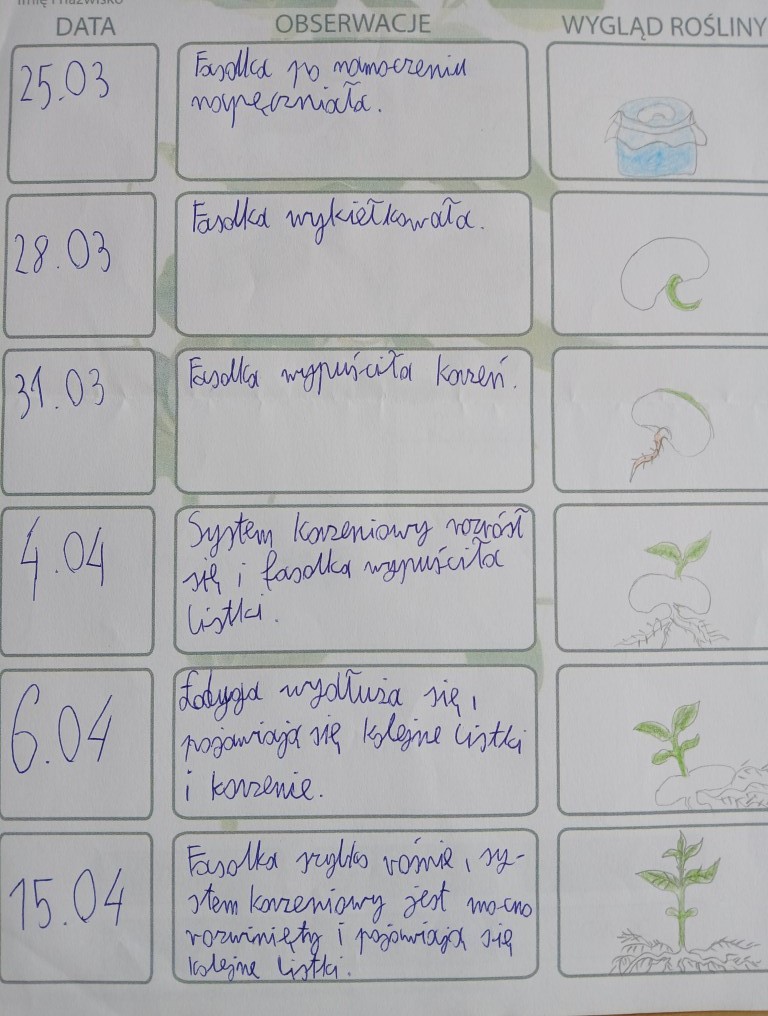 DATA OBSERWACJE WYGLĄD ROŚLINY
25.03
Fasolka po namoczeniu
napęczniała.
28.03
Fasolka wykiełkowała.
31.03
Fasolka wypuściła korzeń.
4.04
System korzeniowy rozrósł
się i fasolka wypuściła
listki.
6.04
Łodyga wydłuża się,
pojawiają się kolejne listki
i korzenie.
15.04
Fasolka szybko rośnie, sy-
stem korzeniowy jest mocno
rozwinięty i pojawiają się
kolejne listki.